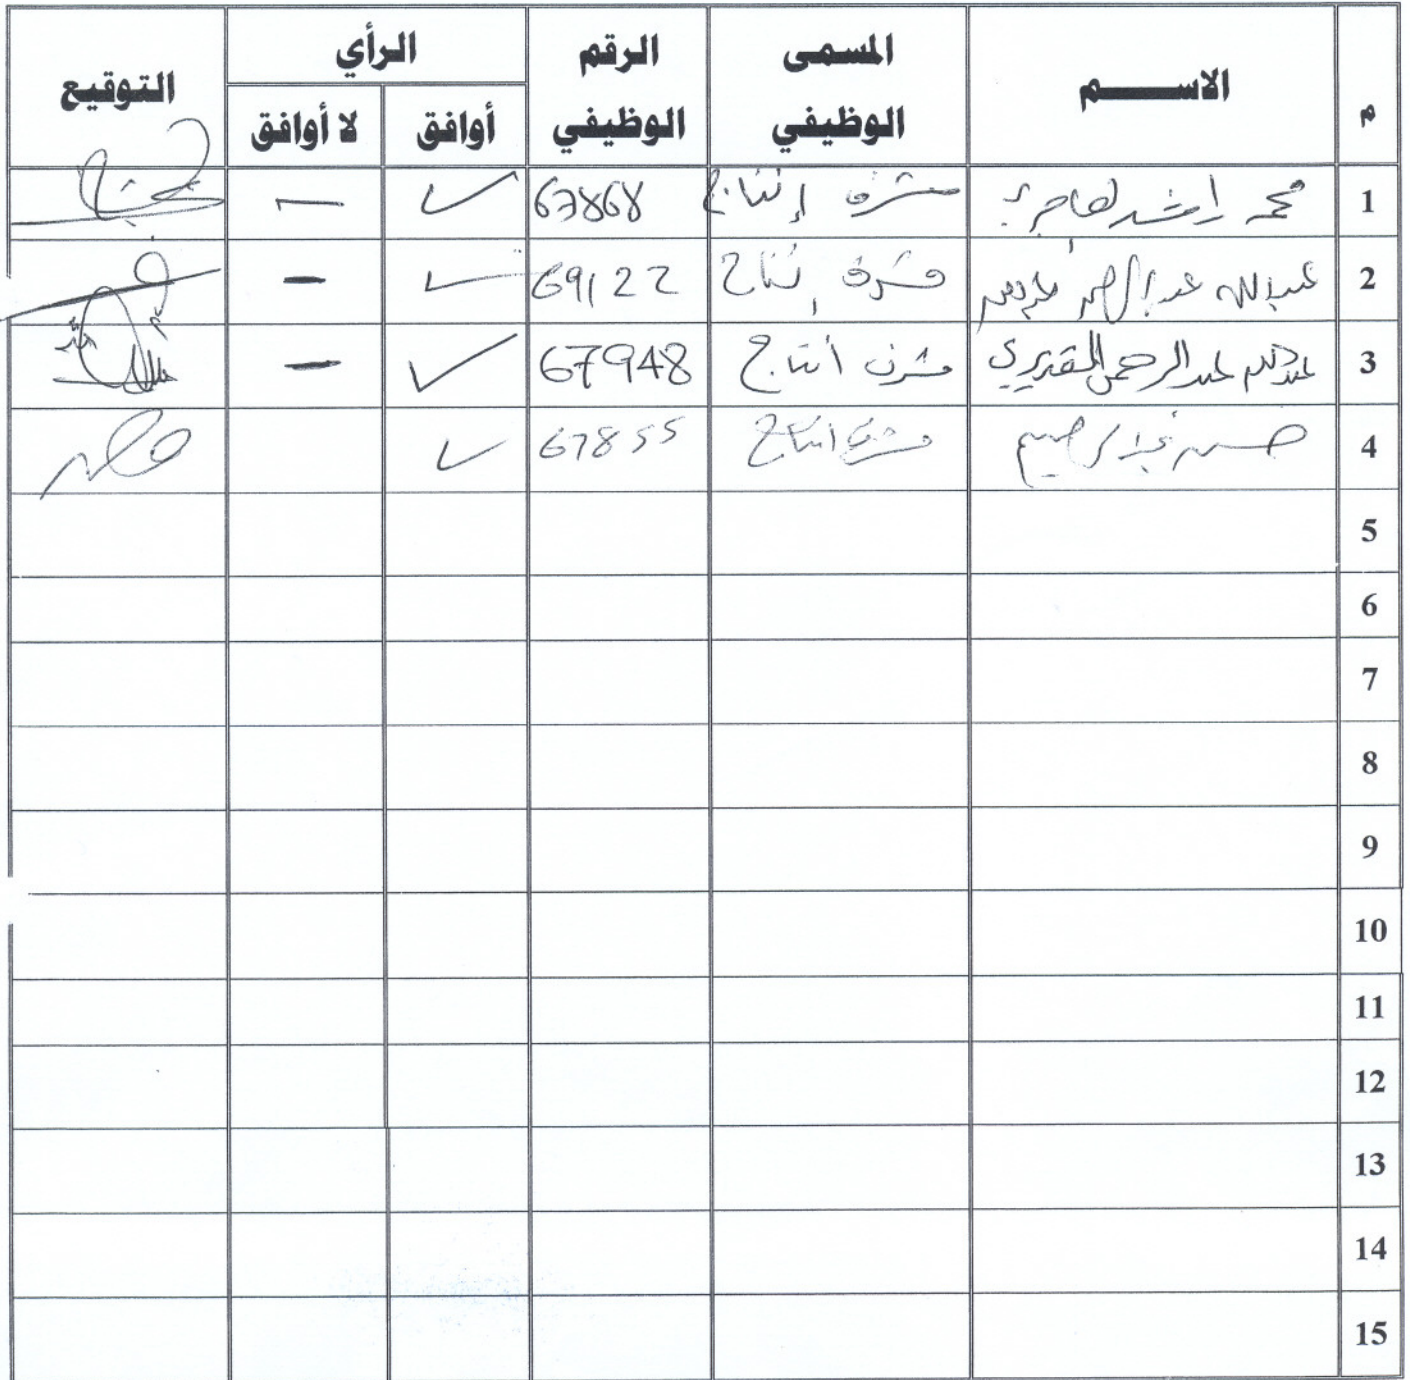 م الاســـــم المسمى الوظيفي الرقم الوظيفي الرأي التوقيع
أوافق لا أوافق
1 محمد راشد الهاجري مشرف إنتاج 67868 ✓ —
2 عبدالله عبدالرحمن مشرف إنتاج 69122 ✓ —
3 عبدالله عبدالرحمن المقيري مشرف أنتاج 67948 ✓ —
4 حسن إبراهيم مشرف انتاج 67855 ✓
5
6
7
8
9
10
11
12
13
14
15